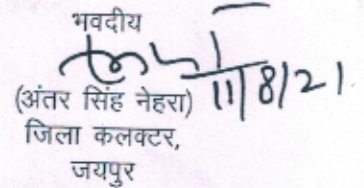 भवदीय
11/8/21
(अंतर सिंह नेहरा)
जिला कलक्टर,
जयपुर